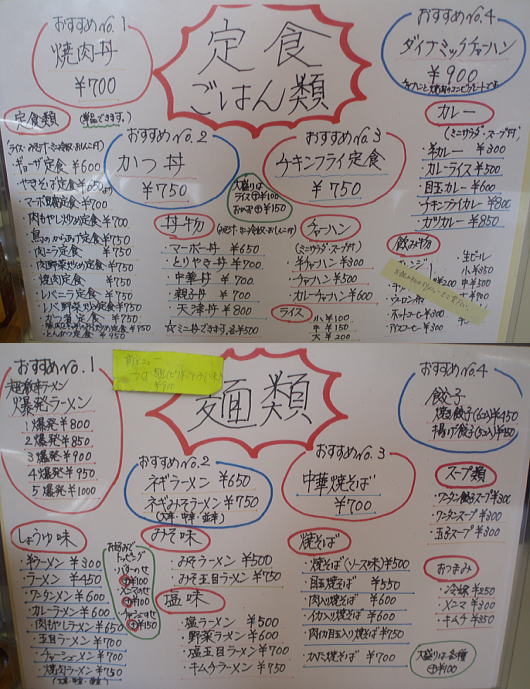 おすすめNo.1
焼肉丼
¥700
定食
ごはん類
おすすめNo.4
ダイナミックチャーハン
¥900
定食類
(単品できます。)
ギョーザ定食 ¥600
やきそば定食 ¥650
マーボ豆腐定食 ¥700
肉もやし炒め定食 ¥700
鳥のからあげ定食 ¥750
肉ニラ定食 ¥750
肉野菜炒め定食 ¥750
焼肉定食 ¥750
レバニラ定食 ¥750
レバ野菜炒め定食 ¥750
とんかつ定食 ¥950
おすすめNo.2
かつ丼
¥750
大盛りは
ライス ⊕¥100
おかず ⊕¥150
おすすめNo.3
チキンフライ定食
¥750
丼物
・マーボー丼 ¥650
・とりやき丼 ¥700
・中華丼 ¥700
・親子丼 ¥700
・天津丼 ¥800
☆ミニ丼できます。各¥500
チャーハン
(ミニサラダ・スープ付)
・半チャーハン ¥300
・チャーハン ¥500
・カレーチャーハン ¥600
ライス
小 ¥100
中 ¥150
大 ¥200
カレー
(ミニサラダ・スープ付)
・半カレー ¥300
・カレーライス ¥500
・目玉カレー ¥600
・チキンフライカレー ¥800
・カツカレー ¥850
飲み物
・生ビール
小 ¥350
中 ¥500
・ウーロン茶
・ホットコーヒー ¥300
・アイスコーヒー ¥300
おすすめNo.1
超激辛ラーメン
爆発ラーメン
1爆発 ¥800
2爆発 ¥850
3爆発 ¥900
4爆発 ¥950
5爆発 ¥1000
麺類
おすすめNo.2
ネギラーメン ¥650
ネギみそラーメン ¥750
おすすめNo.3
中華焼そば
¥700
おすすめNo.4
餃子
焼き餃子(6コ入) ¥450
揚げ餃子(5コ入) ¥450
しょうゆ味
・半ラーメン ¥300
・ラーメン ¥450
・ワンタンメン ¥600
・カレーラーメン ¥600
・肉もやしラーメン ¥650
・五目ラーメン ¥700
・チャーシューメン ¥700
・焼肉ラーメン ¥750
お好みで
トッピング
みそ味
・みそラーメン ¥500
・みそ五目ラーメン ¥750
塩味
・塩ラーメン ¥500
・野菜ラーメン ¥600
・塩五目ラーメン ¥700
・キムチラーメン ¥750
焼そば
・焼そば(ソース味) ¥500
・目玉焼そば ¥550
・肉入り焼そば ¥600
・イカ入り焼そば ¥600
・肉イカ目玉入り焼そば ¥750
・かた焼そば ¥700
スープ類
・ワンタン餃子スープ ¥300
・ワンタンスープ ¥300
・玉子スープ ¥300
おつまみ
・冷奴 ¥250
・メンマ ¥300
・キムチ ¥350
大盛りは各種
⊕¥100